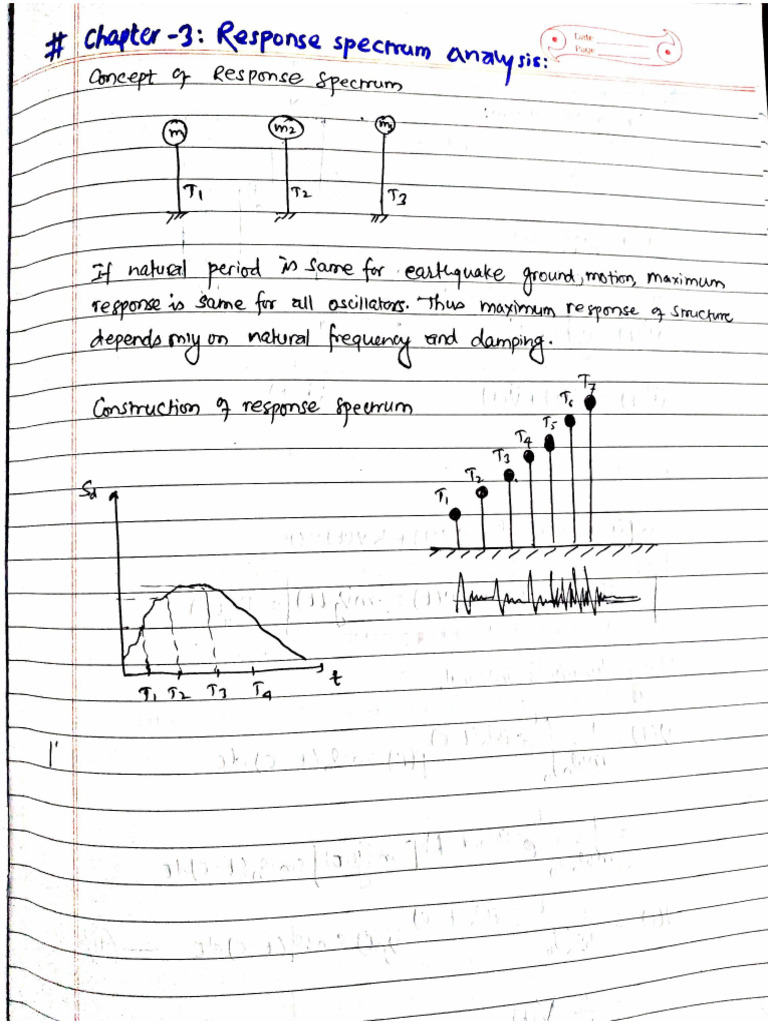 # Chapter-3: Response spectrum analysis:
Date
Page
Concept of Response Spectrum
m
m2
m3
T1
T2
T3
If natural period is same for earthquake ground, motion, maximum
response is same for all oscillators. Thus maximum response of structure
depends only on natural frequency and damping.
Construction of response spectrum
T1
T2
T3
T4
T5
T6
T7
Sd
T1 T2 T3 T4
t